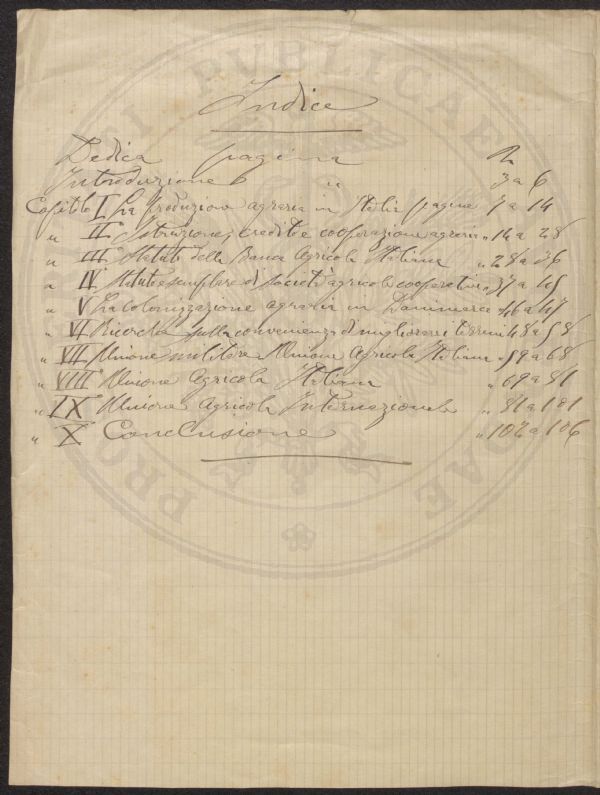 Indice
Dedica pagina 2
Introduzione " 3 a 6
Capitolo I La produzione agraria in Italia pagine 7 a 14
" II Istruzione, credito e cooperazione agraria " 14 a 28
" III Statuto della Banca Agricola Italiana " 28 a 36
" IV Statuto esemplare di società agricole cooperative " 37 a 45
" V La colonizzazione agraria in Danimarca " 46 a 47
" VI Ricerche sulla convenienza di migliorare i terreni " 48 a 58
" VII Unione militare Unione Agricola Italiana " 59 a 68
" VIII Unione Agricola Italiana " 69 a 81
" IX Unione Agricola Internazionale " 81 a 101
" X Conclusione " 102 a 106
PRO PUBLICAE